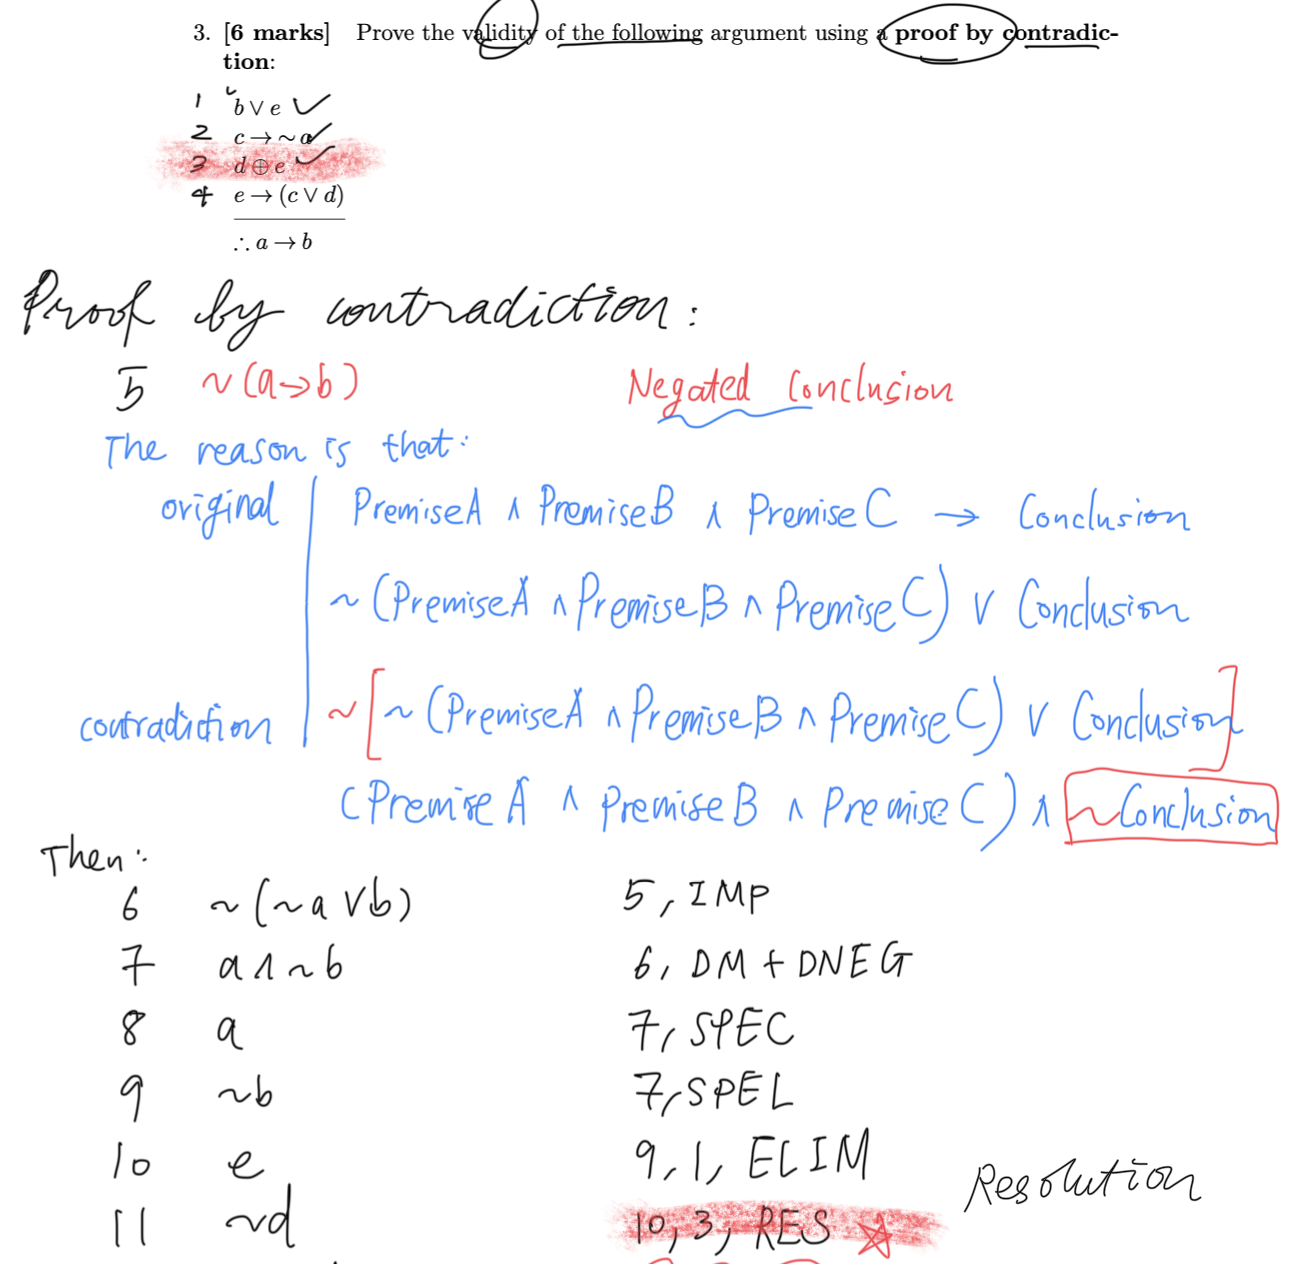 3. [6 marks] Prove the validity of the following argument using a proof by contradic-
tion:
1 b ∨ e ✓
2 c → ~ a ✓
3 d ⊕ e ✓
4 e → (c ∨ d)
∴ a → b
Proof by contradiction:
5 ~(a→b) Negated Conclusion
The reason is that:
original PremiseA ∧ PremiseB ∧ PremiseC → Conclusion
~(PremiseA ∧ PremiseB ∧ PremiseC) ∨ Conclusion
contradiction ~[~(PremiseA ∧ PremiseB ∧ PremiseC) ∨ Conclusion]
(PremiseA ∧ PremiseB ∧ PremiseC) ∧ ~Conclusion
Then:
6 ~(~a ∨ b) 5, IMP
7 a ∧ ~b 6, DM + DNEG
8 a 7, SPEC
9 ~b 7, SPEL
10 e 9, 1, ELIM
Resolution
11 ~d 10, 3, RES